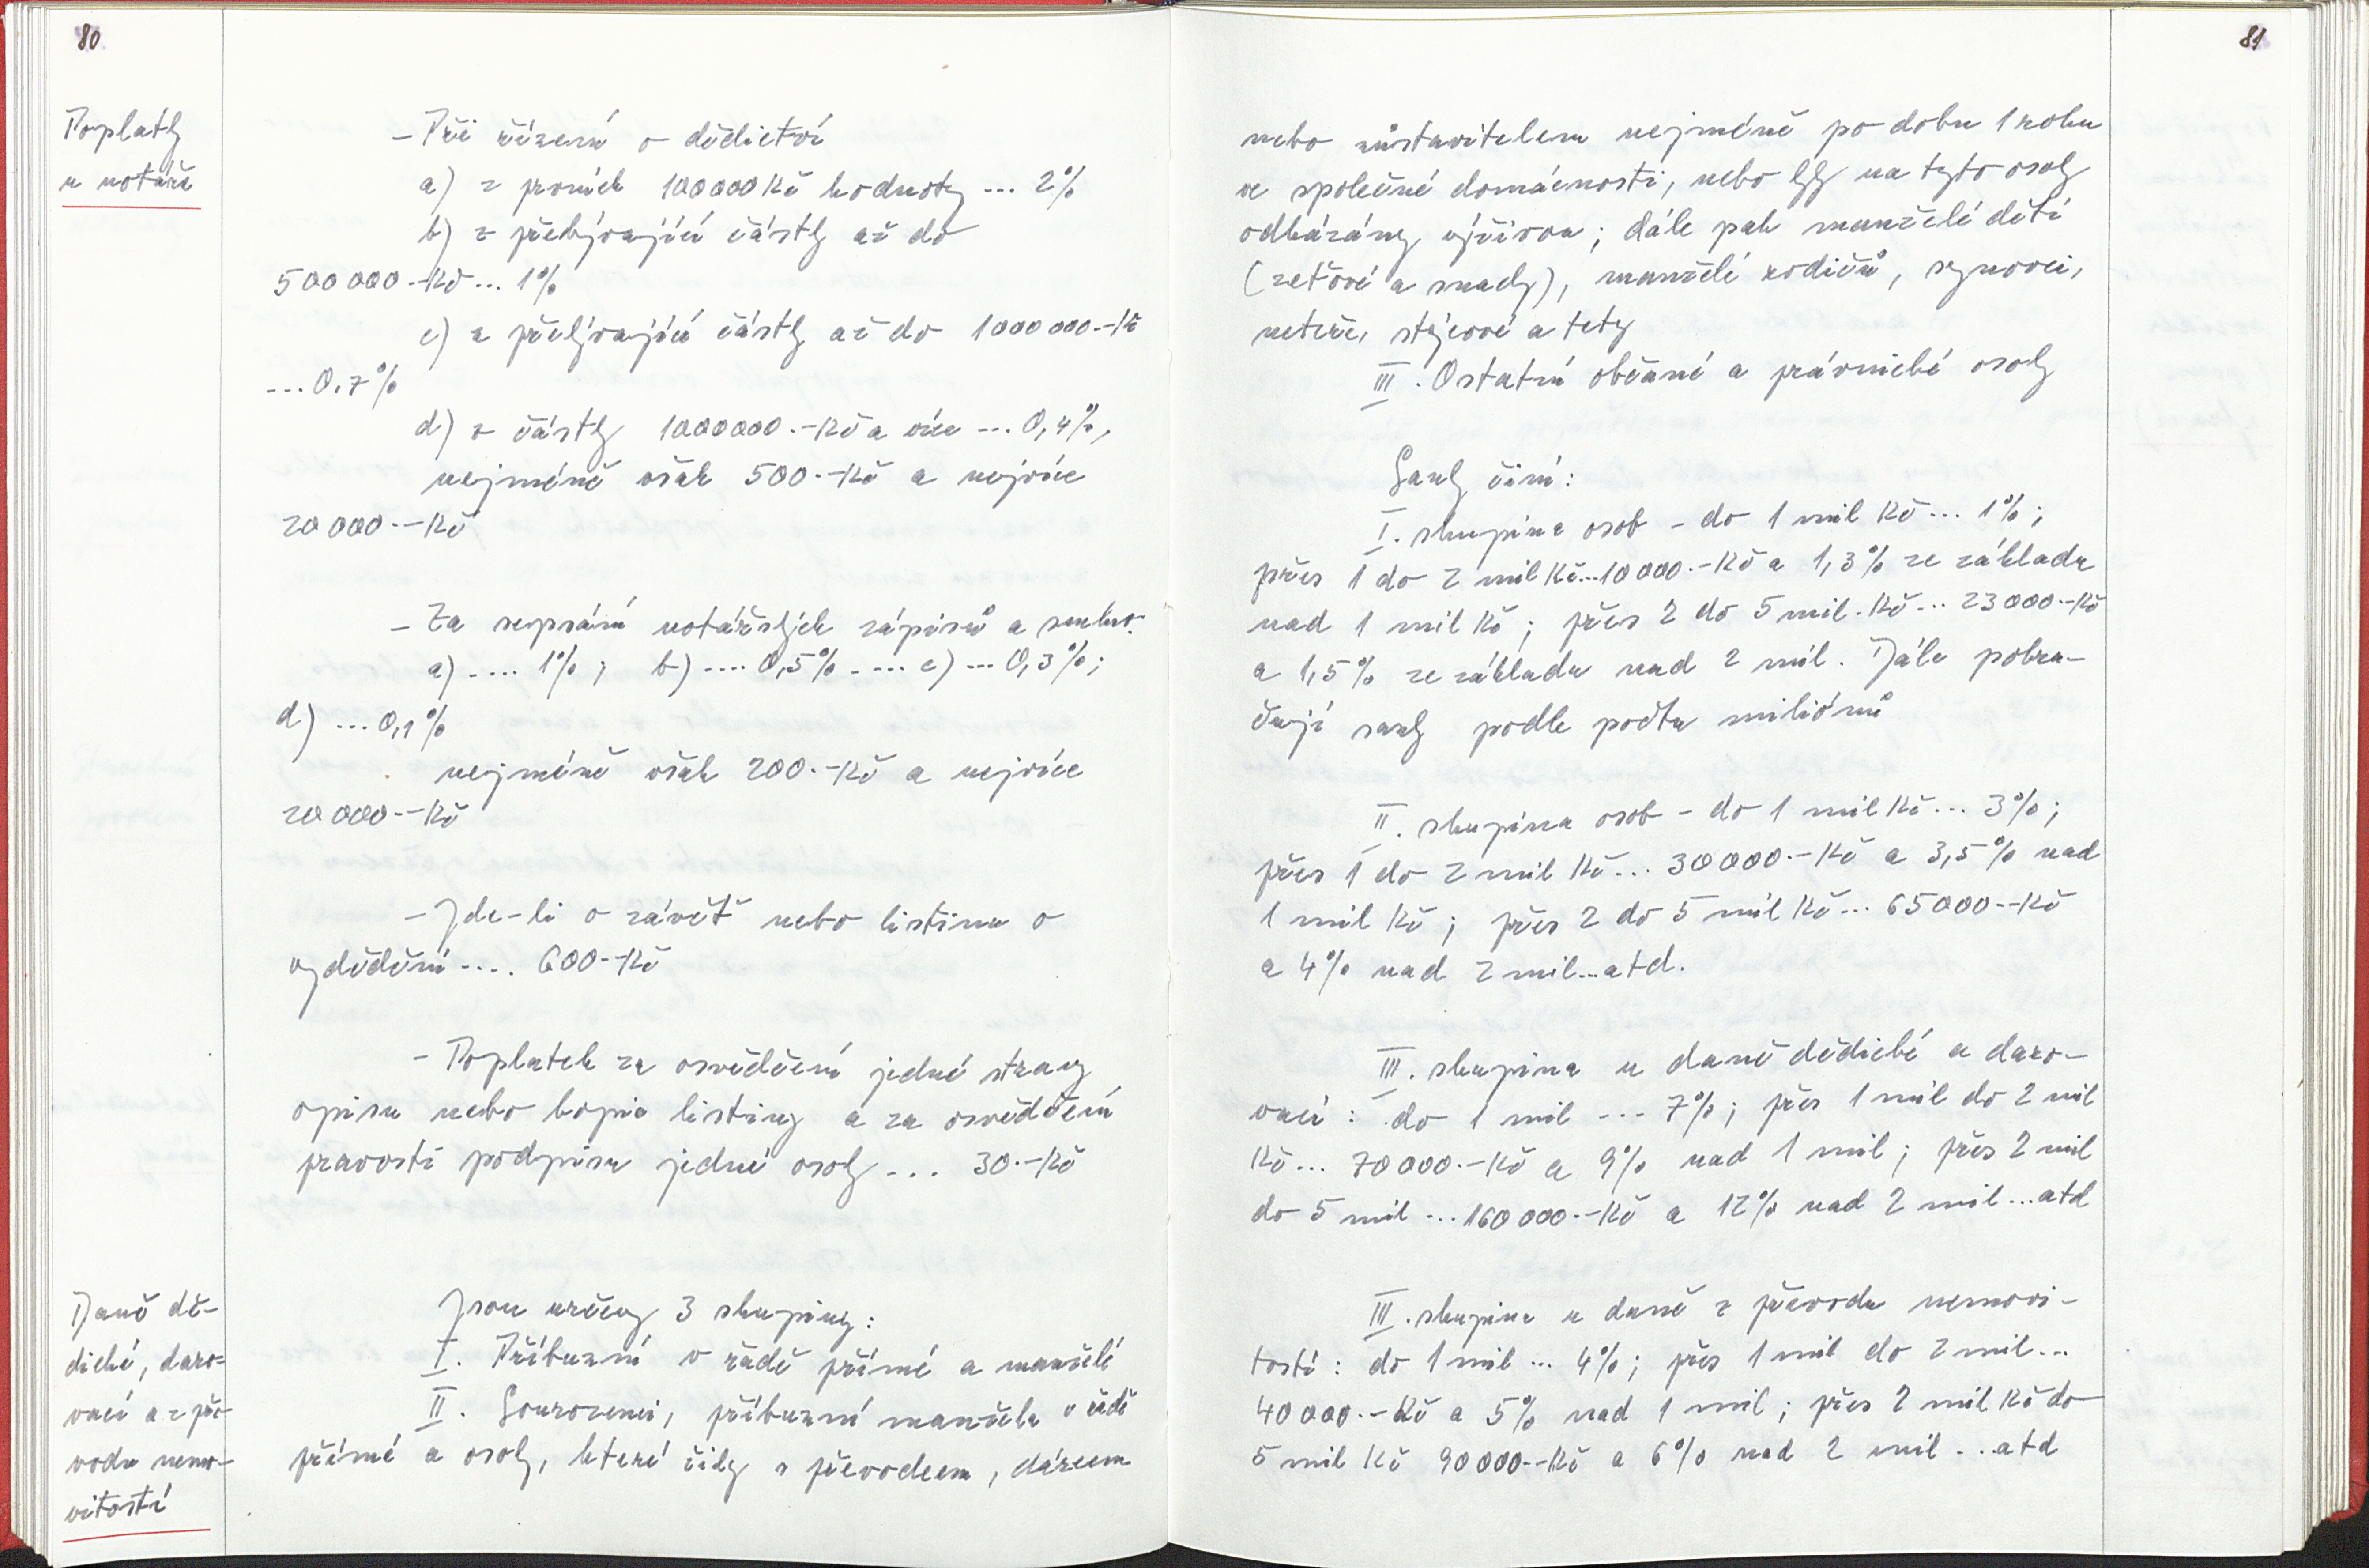 80
Poplatky
u notáře
- Při řízení o dědictví
a) z prvních 100000Kč hodnoty ... 2%
b) z přebývající částky až do
500000.-Kč... 1%
c) z přebývající částky až do 1000000.-Kč
...0.7%
d) z částky 1000000.-Kč a více ... 0,4%,
nejméně však 500.-Kč a nejvíce
20000.-Kč
- Za sepsání notářských zápisů a smluv:
a) .... 1%; b) .... 0,5% .... c) ... 0,3%;
d) ... 0,1%
nejméně však 200.-Kč a nejvíce
20000.-Kč
- Jde-li o závěť nebo listinu o
vydědění .... 600.-Kč
- Poplatek za osvědčení jedné strany
opisu nebo kopie listiny a za osvědčení
pravosti podpisu jedné osoby ... 30.-Kč
Daně dě-
dické, daro-
vací a z pře-
vodu nemo-
vitostí
Jsou určeny 3 skupiny:
I. Příbuzní v řadě přímé a manželé
II. Sourozenci, příbuzní manžela v řadě
přímé a osoby, které žily s převodcem, dárcem
81
nebo zůstavitelem nejméně po dobu 1 roku
ve společné domácnosti, nebo byly na tyto osoby
odkázány výživou; dále pak manželé dětí
(zeťové a snachy), manželé rodičů, synovci,
neteře, strýcové a tety
III. Ostatní občané a právnické osoby
Sazby činí:
I. skupina osob - do 1 mil Kč... 1%;
přes 1 do 2 mil Kč...10000.-Kč a 1,3% ze základu
nad 1 mil Kč; přes 2 do 5 mil. Kč... 23000.-Kč
a 1,5% ze základu nad 2 mil. Dále pokra-
čují sazby podle počtu miliónů
II. skupina osob - do 1 mil Kč... 3%;
přes 1 do 2 mil Kč... 30000.-Kč a 3,5% nad
1 mil Kč; přes 2 do 5 mil Kč... 65000.-Kč
a 4% nad 2 mil...atd.
III. skupina u daně dědické a daro-
vací: do 1 mil ... 7%; přes 1 mil do 2 mil
Kč... 70000.-Kč a 9% nad 1 mil; přes 2 mil
do 5 mil ...160000.-Kč a 12% nad 2 mil...atd
III. skupina u daně z převodu nemovi-
tostí: do 1 mil ... 4%; přes 1 mil do 2 mil...
40000.-Kč a 5% nad 1 mil; přes 2 mil Kč do
5 mil Kč 90000.-Kč a 6% nad 2 mil ...atd